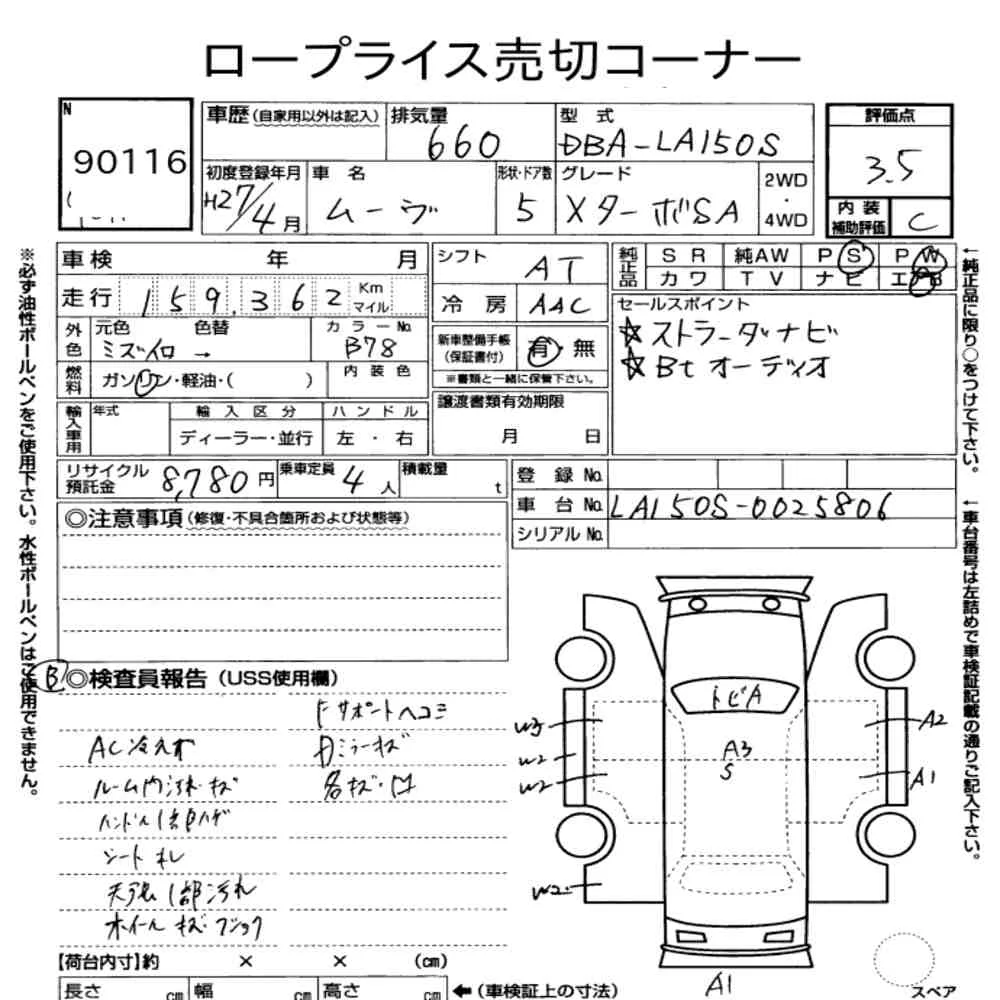 ロープライス売切コーナー
N
90116
車歴(自家用以外は記入)
排気量
660
型 式
DBA-LA150S
評価点
3.5
初度登録年月
H27/4月
車 名
ムーヴ
形状・ドア数
5
グレード
XターボSA
2WD
・
4WD
内装
補助評価
C
車検 年 月
走行 159,362 Km
マイル
外色
元色 色替
ミズイロ →
カラーNo.
B78
燃料
ガソリン・軽油・( )
内装色
輸入車用
年式
輸入区分
ディーラー・並行
ハンドル
左・右
シフト
AT
冷房
AAC
新車整備手帳
(保証書付)
有・無
※書類と一緒に保管下さい。
譲渡書類有効期限
月 日
純正品
SR 純AW PS PW
カワ TV ナビ エアB
セールスポイント
☆ストラーダナビ
☆Btオーディオ
リサイクル
預託金
8,780円
乗車定員
4人
積載量
t
登録No.
車台No. LA150S-0025806
シリアルNo.
◎注意事項(修復・不具合箇所および状態等)
B
◎検査員報告(USS使用欄)
AC冷えず
ルーム内汚れ キズ
ハンドル1部ハゲ
シート
天張1部汚れ
ホイール キズ・フショク
Fサポートヘコミ
Dミラーキズ
各キズ・凹
【荷台内寸】約 × × (cm)
長さ cm
幅 cm
高さ cm
←(車検証上の寸法)
トビA
A3
S
W3
W2
W2
W2
A2
A1
A1
スペア
※必ず油性ボールペンをご使用下さい。水性ボールペンはご使用できません。
←純正品に限り○をつけて下さい。
←車台番号は左詰めで車検証記載の通りご記入下さい。